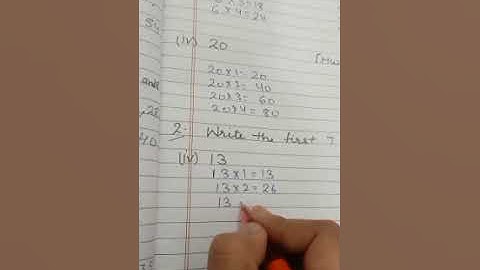 6×4=24
(iv) 20
20×1=20
20×2=40
20×3=60
20×4=80
2. Write the first 7
(iv) 13
13×1=13
13×2=26
13